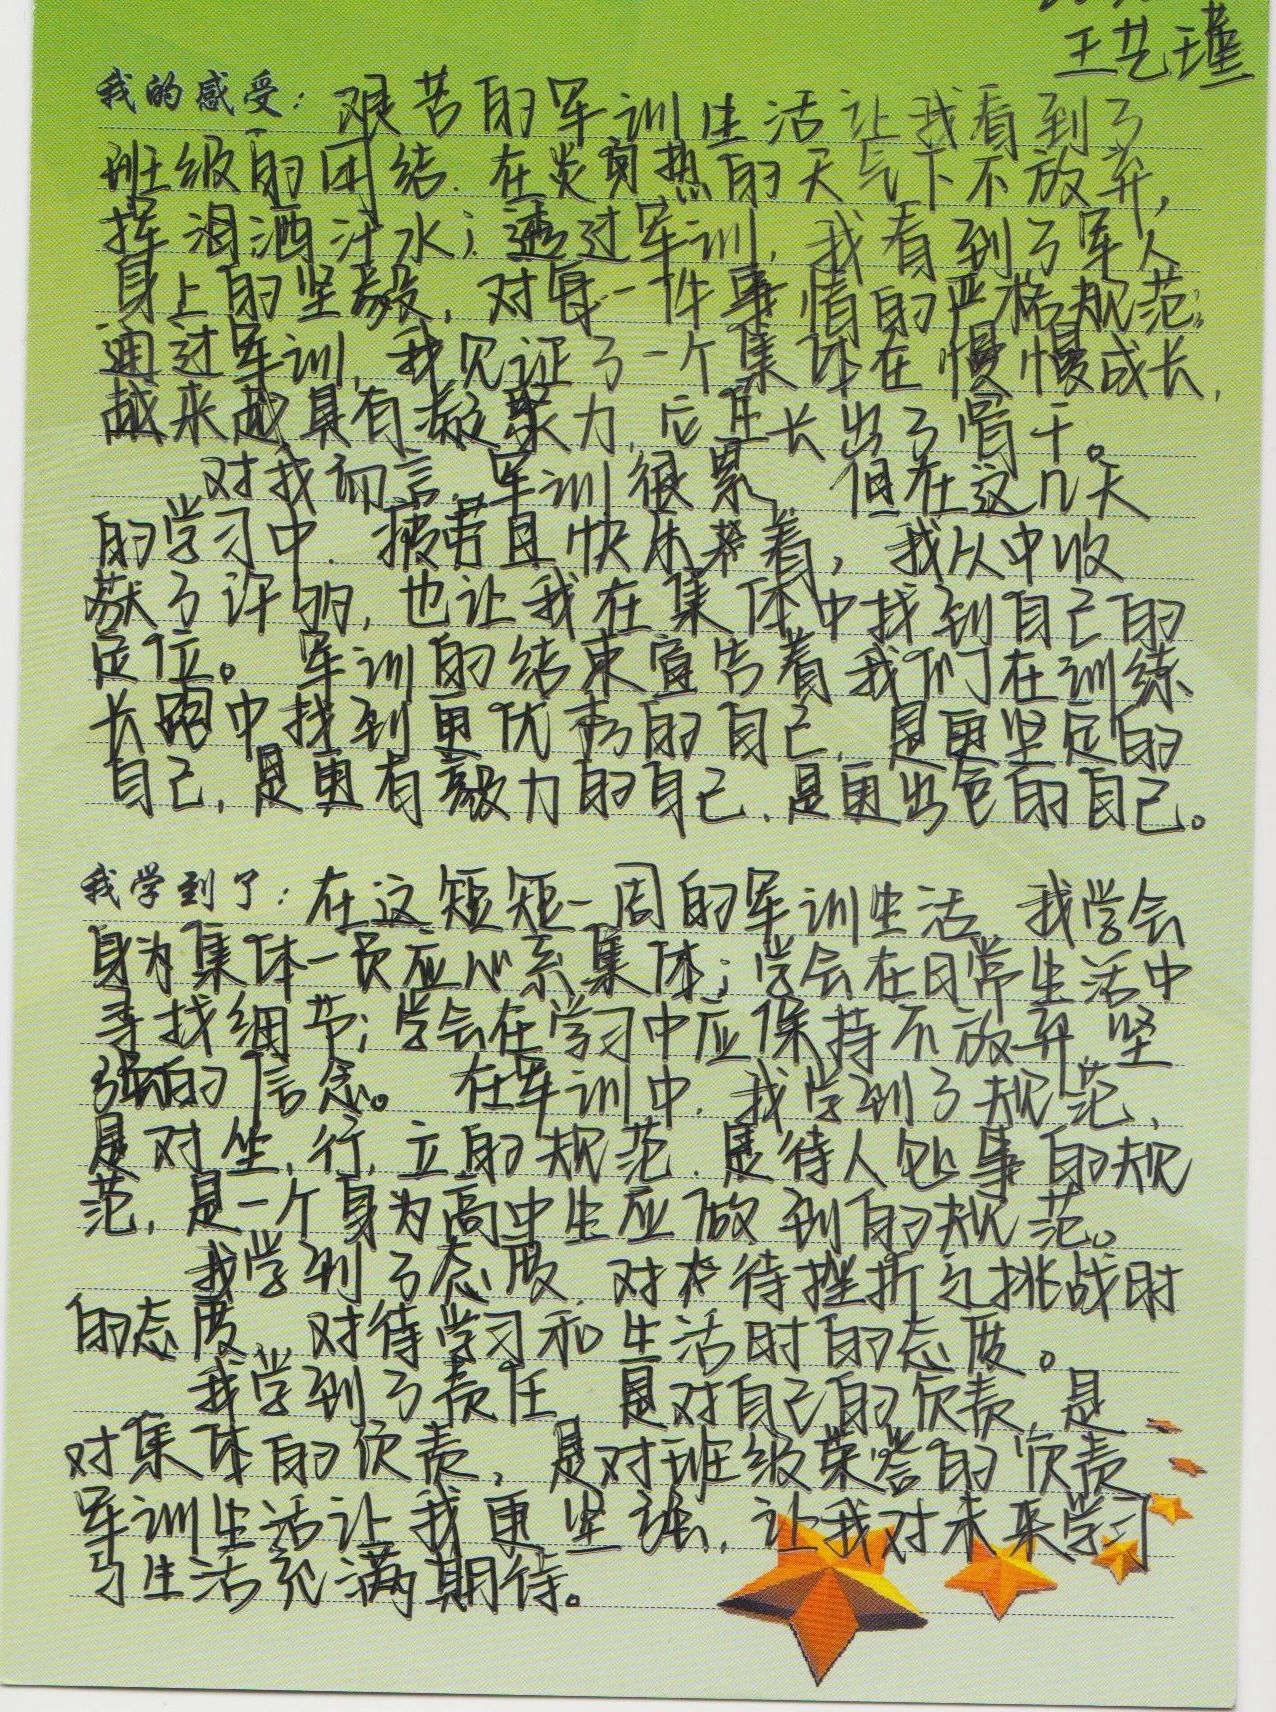 王艺瑾
我的感受：艰苦的军训生活让我看到了
班级的团结.在炎热的天气下不放弃,
挥泪洒汗水;透过军训,我看到了军人
身上的坚毅,对每一件事情的严格规范;
通过军训,我见证了一个集体在慢慢成长,
越来越具有凝聚力,它生长出了骨干。
对我而言,军训很累,但在这几天
的学习中.疲劳且快乐着,我从中收
获了许多,也让我在集体中找到自己的
定位。军训的结束宣告着我们在训练
长跑中找到更优秀的自己,是更坚定的
自己,是更有毅力的自己.是更出色的自己。
我学到了：在这短短一周的军训生活,我学会
身为集体一员应心系集体;学会在日常生活中
寻找细节;学会在学习中应保持不放弃,坚
强的信念。在军训中,我学到了规范,
是对坐,行,立的规范.是待人处事的规
范,是一个身为高中生应做到的规范。
我学到了态度.对待挫折之挑战时
的态度,对待学习和生活时的态度。
我学到了责任 是对自己的负责,是
对集体的负责,是对班级荣誉的负责
军训生活让我更坚强,让我对未来学习
与生活充满期待。